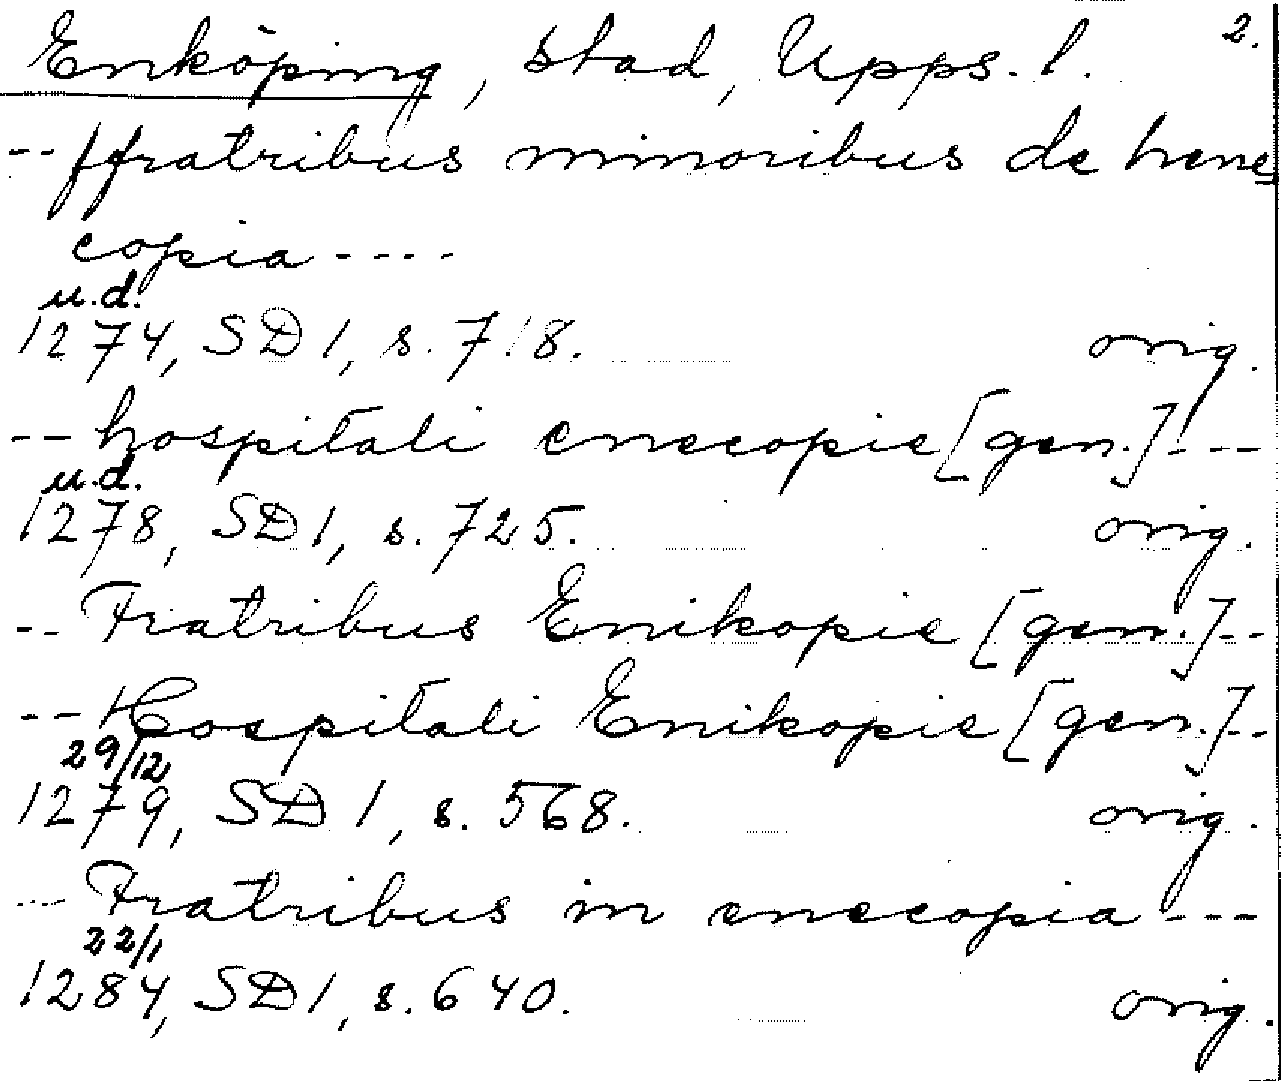 Enköping, stad, Upps. l. 2.
-- ffratribus minoribus de hene
copia ----
u.d.
1274, SD 1, s. 718. orig.
-- hospitali enecopie [gen.] ---
u.d.
1278, SD 1, s. 725. orig.
-- Fratribus Enikopie [gen.] --
-- Hospitali Enikopie [gen.] --
29/12
1279, SD 1, s. 568. orig.
--- Fratribus in enecopia ---
22/1
1284, SD 1, s. 640. orig.